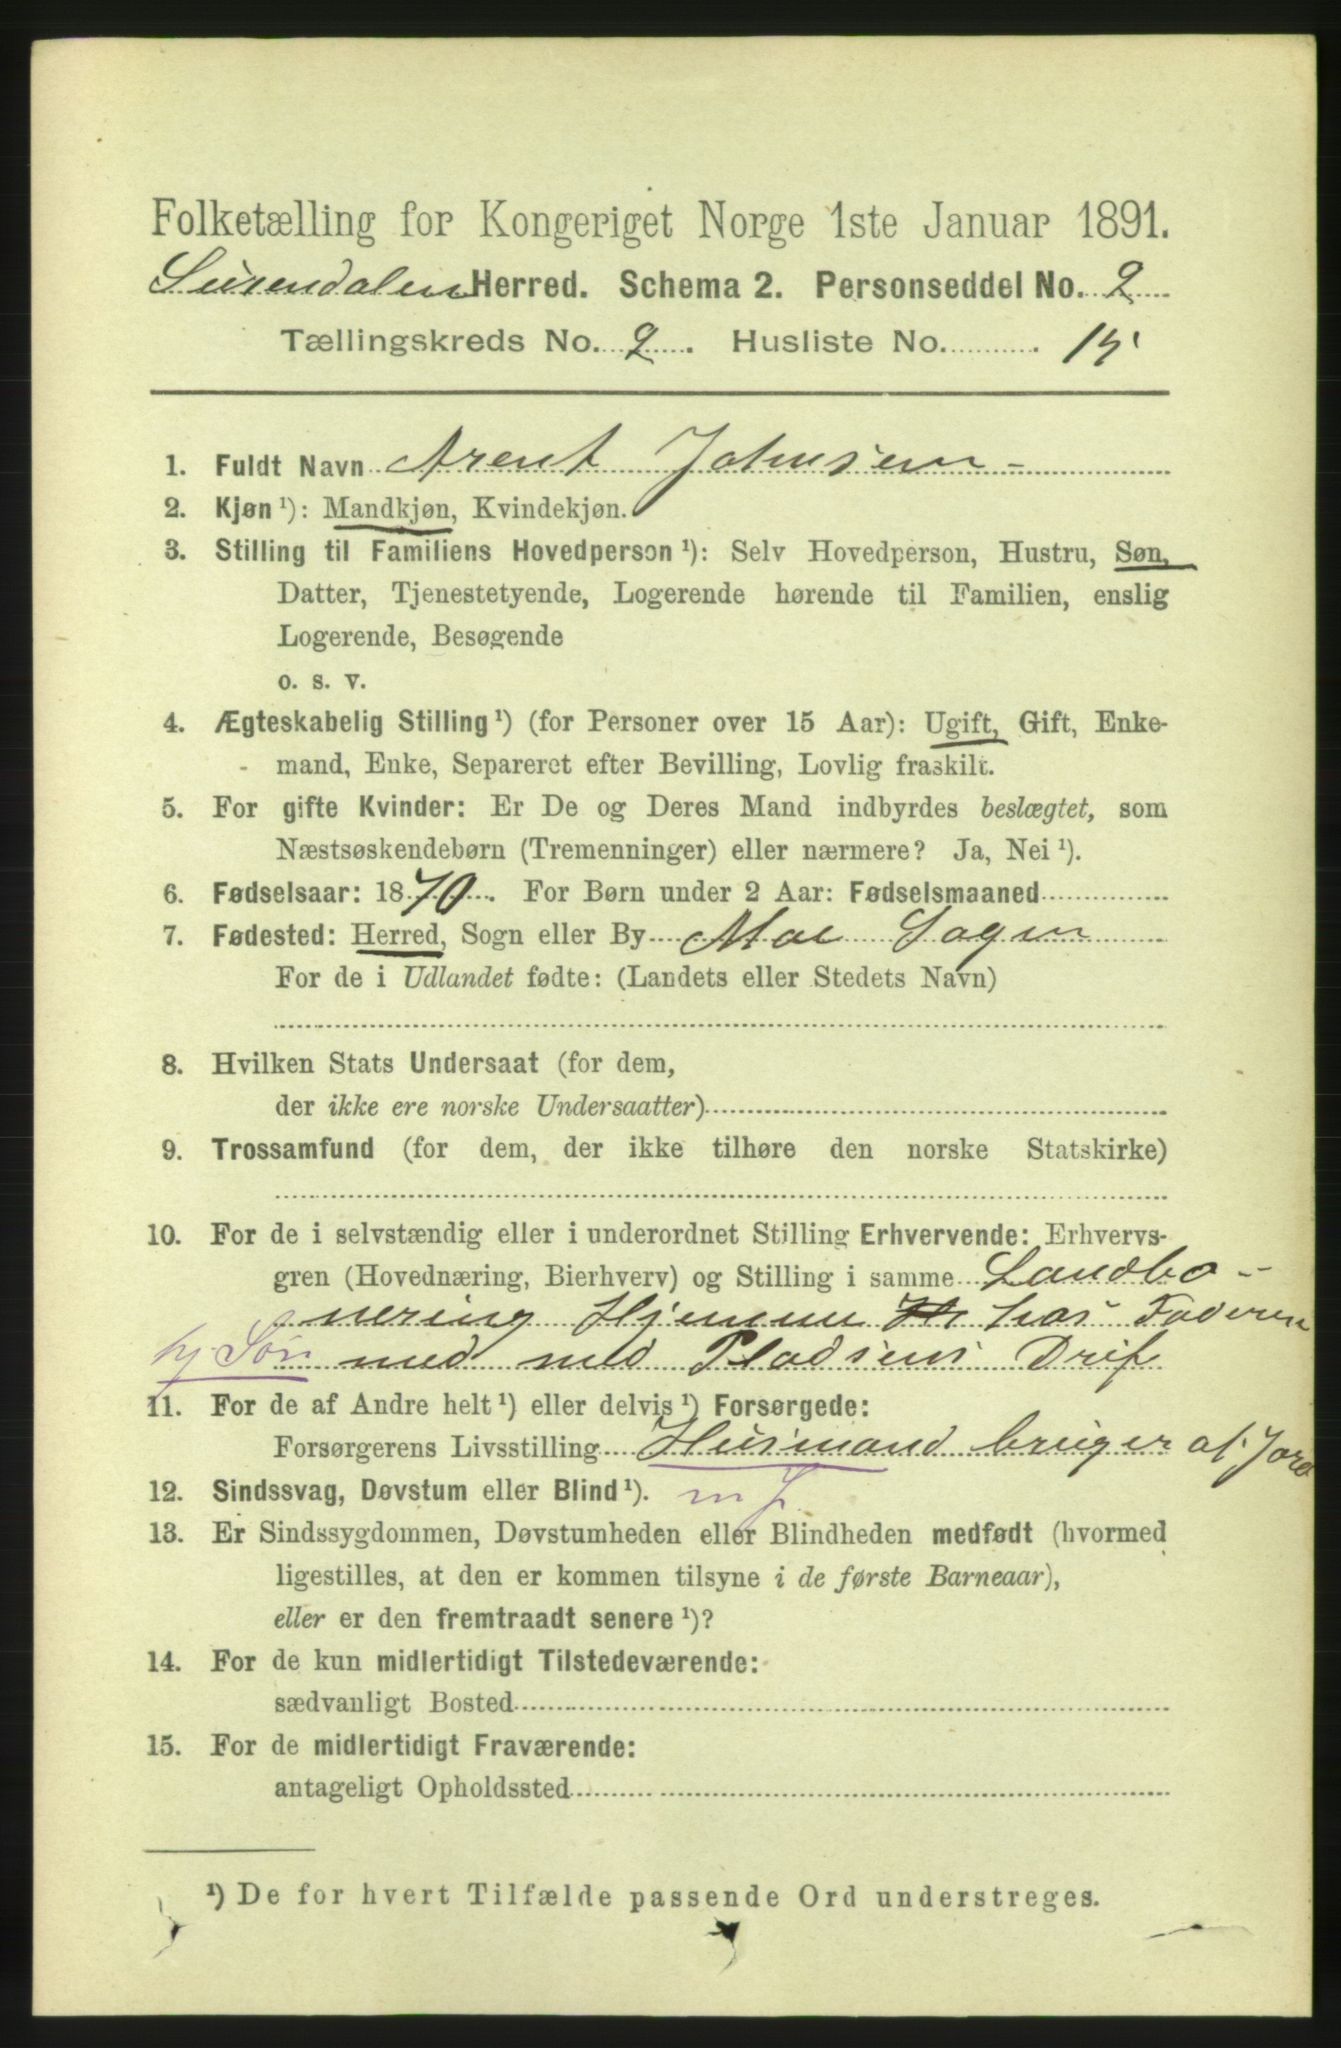 Folketælling for Kongeriget Norge 1ste Januar 1891.
Surendalen Herred. Schema 2. Personseddel No. 2
Tællingskreds No. 2. Husliste No. 15
1. Fuldt Navn Arent Johnsen
2. Kjøn ¹): Mandkjøn, Kvindekjøn.
3. Stilling til Familiens Hovedperson ¹): Selv Hovedperson, Hustru, Søn,
Datter, Tjenestetyende, Logerende hørende til Familien, enslig
Logerende, Besøgende
o. s. v.
4. Ægteskabelig Stilling ¹) (for Personer over 15 Aar): Ugift, Gift, Enke-
mand, Enke, Separeret efter Bevilling, Lovlig fraskilt.
5. For gifte Kvinder: Er De og Deres Mand indbyrdes beslægtet, som
Næstsøskendebørn (Tremenninger) eller nærmere? Ja, Nei ¹).
6. Fødselsaar: 1870. For Børn under 2 Aar: Fødselsmaaned
7. Fødested: Herred, Sogn eller By Moe Sogn
For de i Udlandet fødte: (Landets eller Stedets Navn)
8. Hvilken Stats Undersaat (for dem,
der ikke ere norske Undersaatter)
9. Trossamfund (for dem, der ikke tilhøre den norske Statskirke)
10. For de i selvstændig eller i underordnet Stilling Erhvervende: Erhvervs-
gren (Hovednæring, Bierhverv) og Stilling i samme Landbo-
nering Hjemme hos Faderen
hj Søn med med Pladsens Drif
11. For de af Andre helt ¹) eller delvis ¹) Forsørgede:
Forsørgerens Livsstilling Husmand bruger af Jord
12. Sindssvag, Døvstum eller Blind ¹). m J.
13. Er Sindssygdommen, Døvstumheden eller Blindheden medfødt (hvormed
ligestilles, at den er kommen tilsyne i de første Barneaar),
eller er den fremtraadt senere ¹)?
14. For de kun midlertidigt Tilstedeværende:
sædvanligt Bosted
15. For de midlertidigt Fraværende:
antageligt Opholdssted
¹) De for hvert Tilfælde passende Ord understreges.